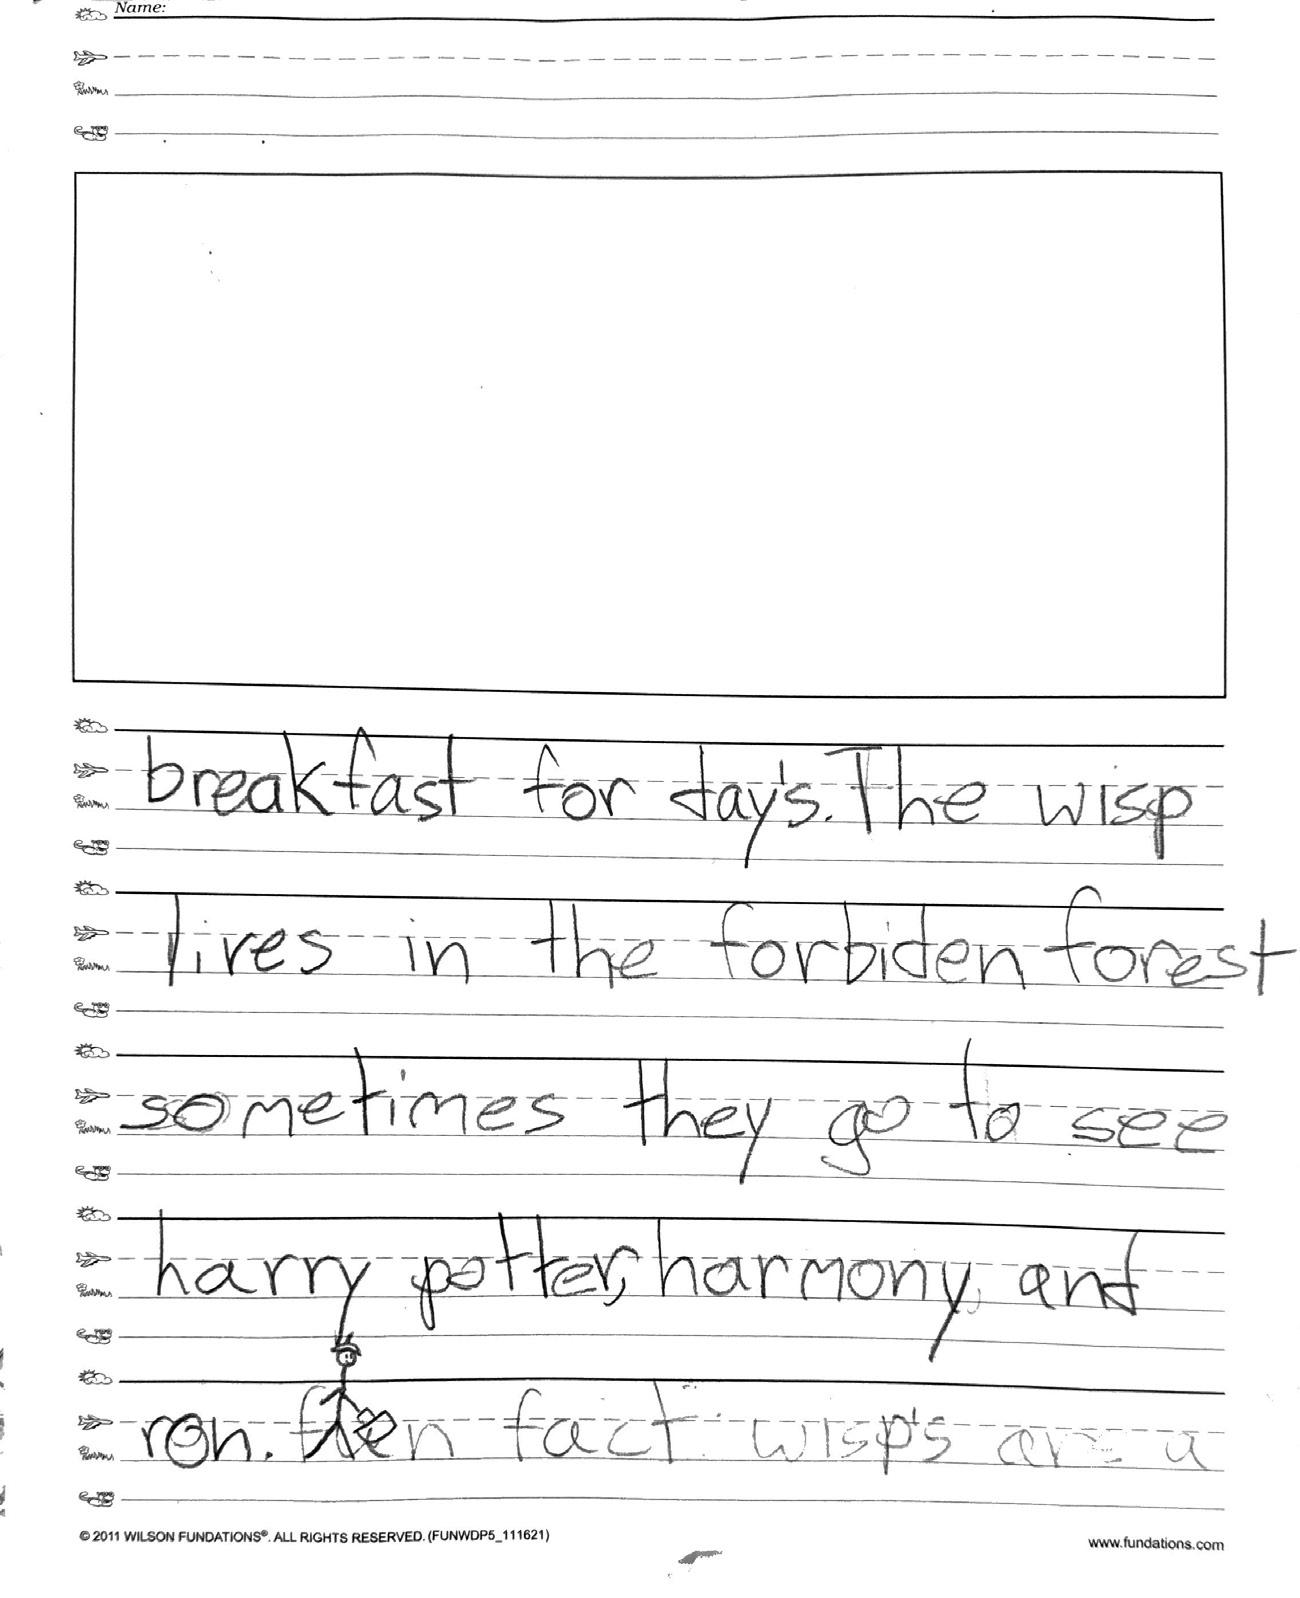 Name:
breakfast for day's. The wisp
lives in the forbiden forest
sometimes they go to see
harry potter, harmony, and
ron. fact: wisp's are a
© 2011 WILSON FUNDATIONS®. ALL RIGHTS RESERVED. (FUNWDP5_111621)
www.fundations.com